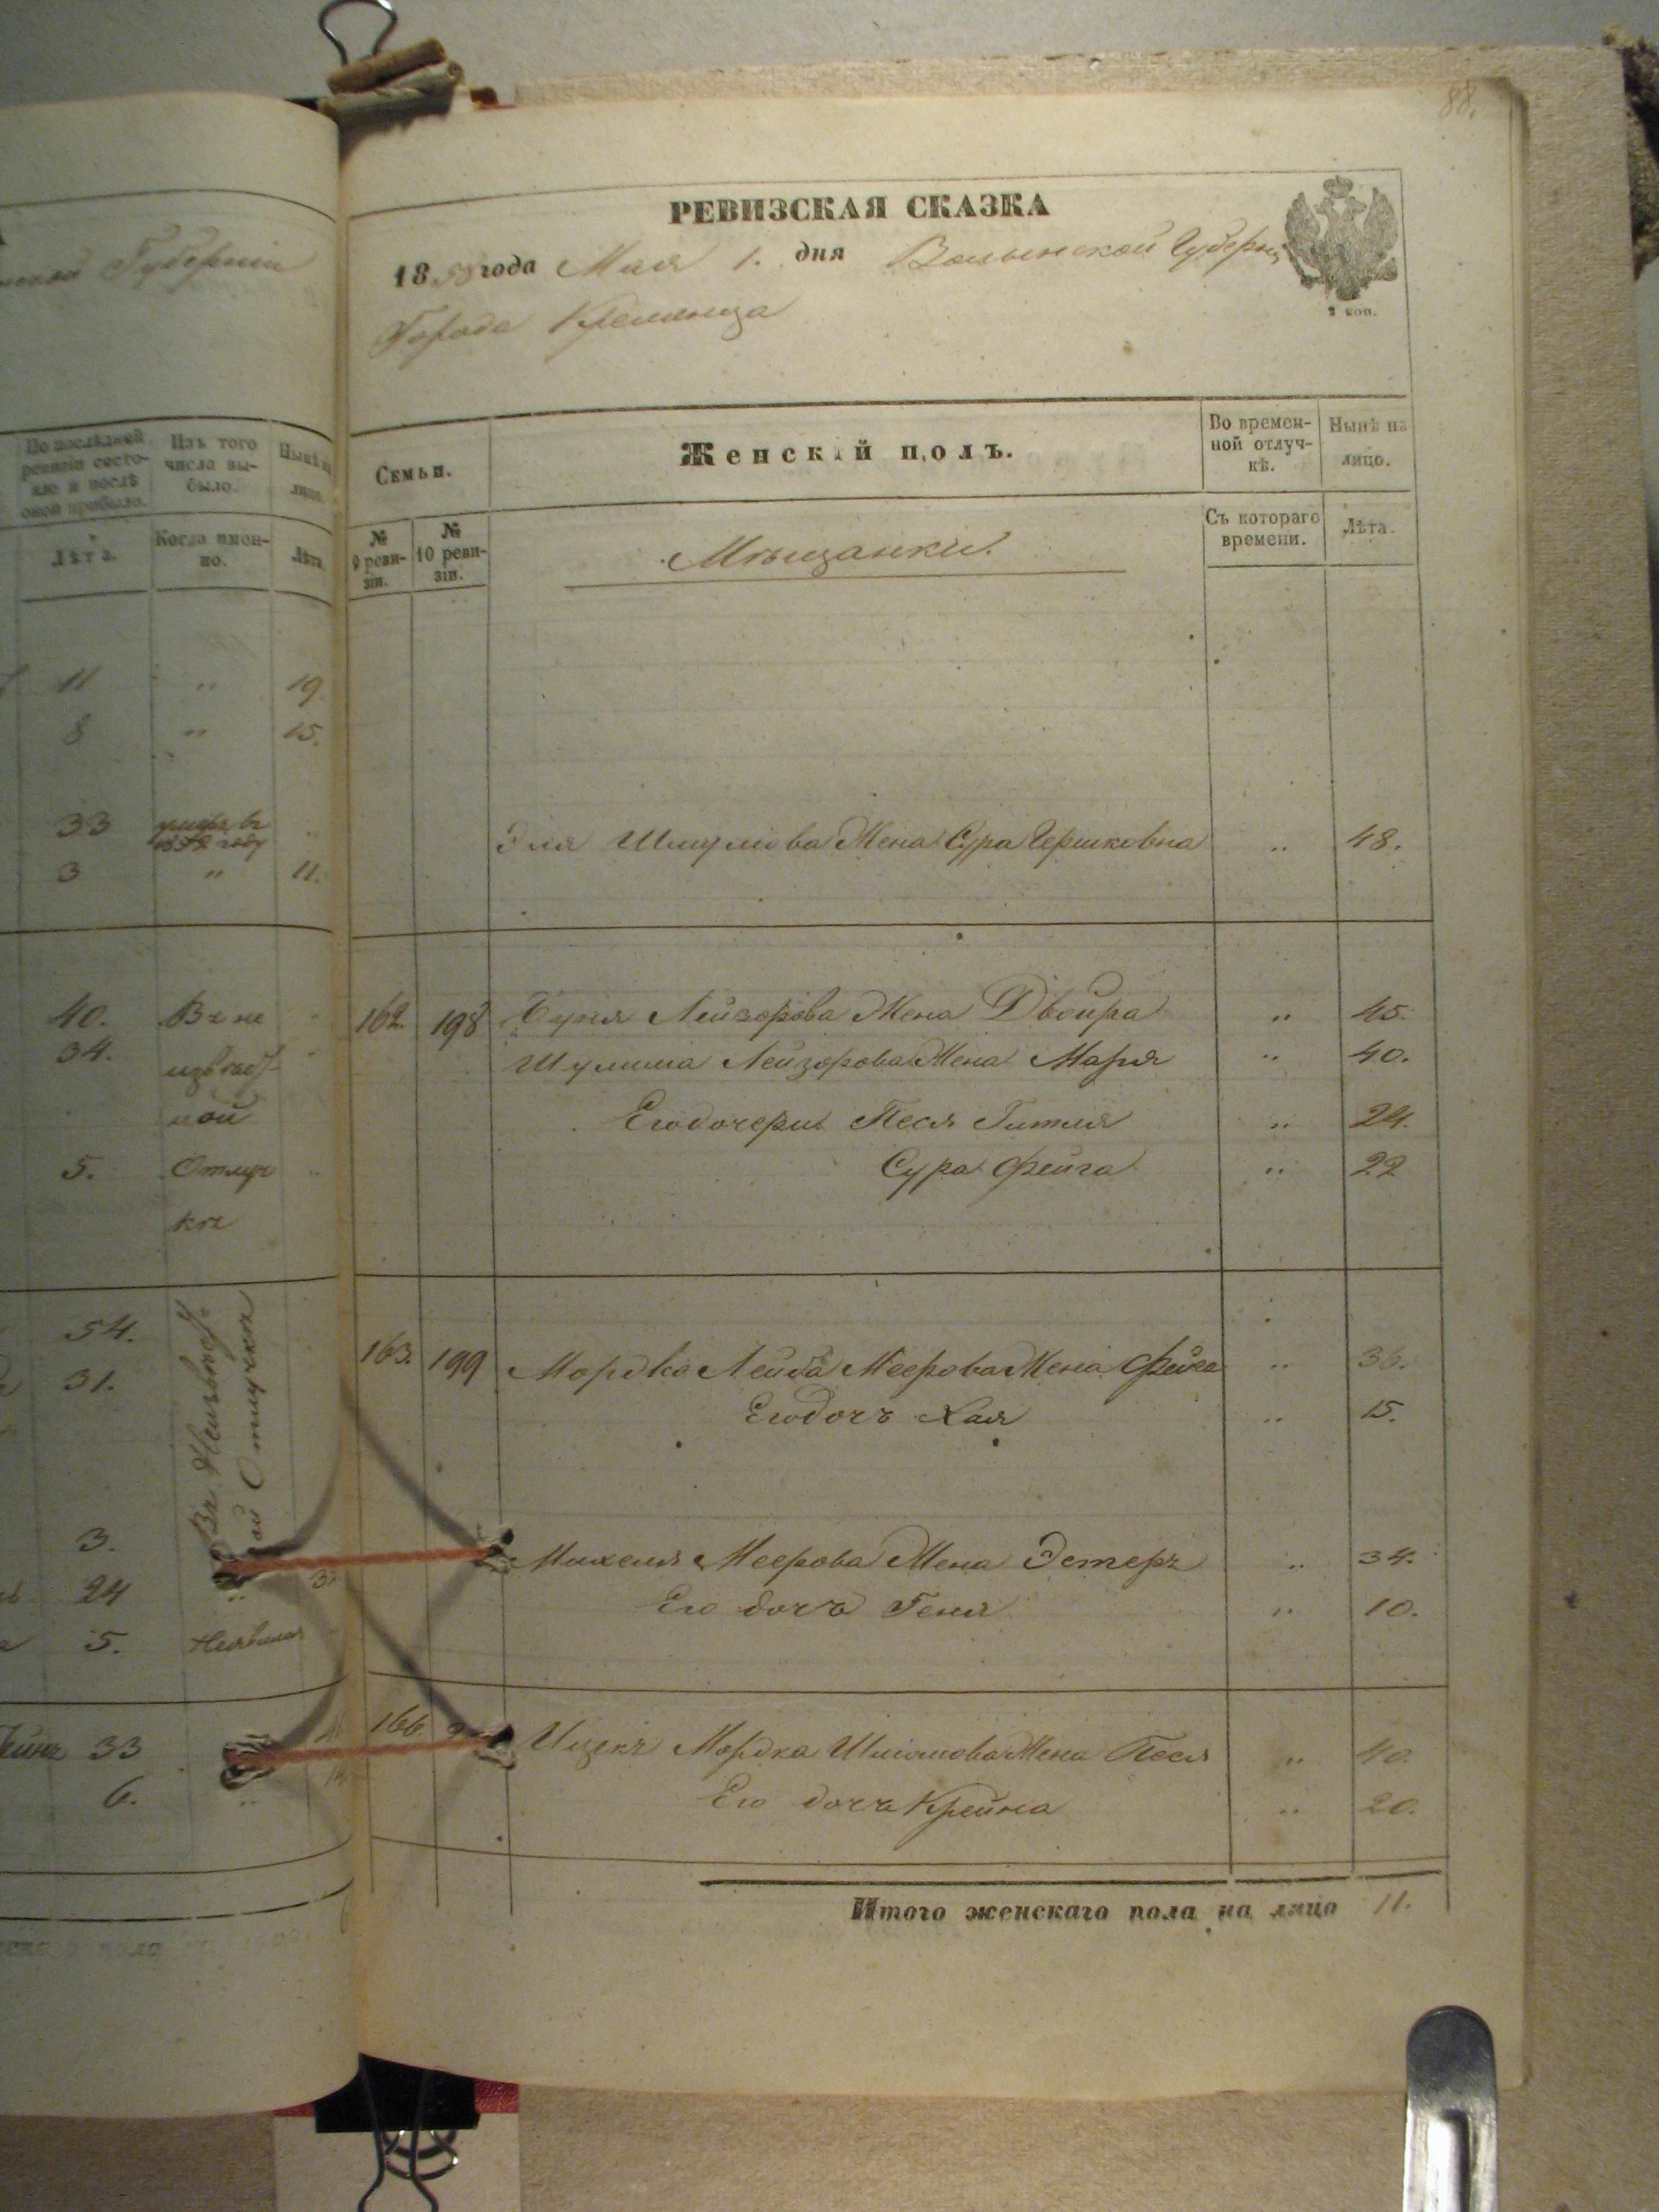 88.
Губернии
По последней ревизіи состояло и послѣ оной прибыло.
Изъ того числа выбыло.
Нынѣ на лицо.
Лѣта.
Когда именно.
Лѣта.
11 " 19.
8 " 15.
33
3 " 11.
40. Въ не
34. извѣст
ной
5. Отлуч
кѣ
54.
31.
Въ Неизвѣст
ной Отлучкѣ
3.
24 "
5.
33
6. "
РЕВИЗСКАЯ СКАЗКА
1858 года Мая 1. дня Волынской Губерніи
Города Кременца
2 коп.
Семьи.
Женскій полъ.
Во временной отлучкѣ.
Нынѣ на лицо.
№ 9 ревизіи.
№ 10 ревизіи.
Мѣщанки.
Съ котораго времени.
Лѣта.
Эля Шмулова Жена Сура Гершковна " 48.
162. 198 Лейзорова Жена Двойра " 45.
Шулима Лейзорова Жена Маря " 40.
Его дочери Песя Гитля " 24.
Сура Фейга " 22
163. 199 Мордко Лейба Меерова Жена Фейга " 36.
Его дочь Хая " 15.
Михеля Меерова Жена Эстеръ " 34.
Его дочь Геня " 10.
166. Ицекъ Мордка Шлiомова Жена Песя " 40.
Его дочь Крейна " 20.
Итого женскаго пола на лицо 11.